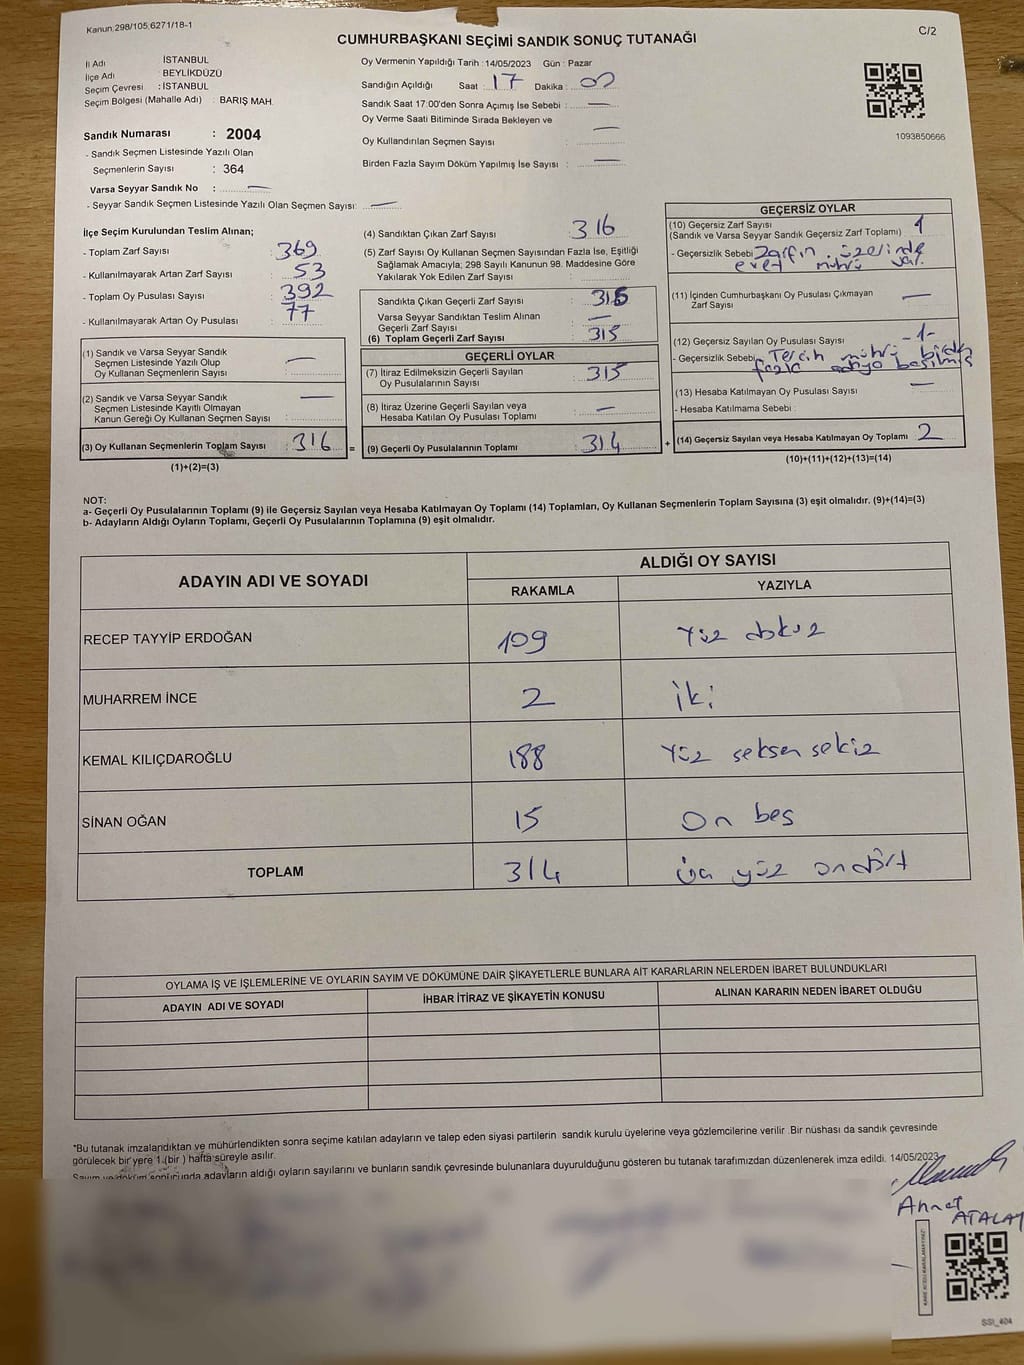 Kanun.298/105,6271/18-1
C/2
CUMHURBAŞKANI SEÇİMİ SANDIK SONUÇ TUTANAĞI
İl Adı İSTANBUL
İlçe Adı BEYLİKDÜZÜ
Seçim Çevresi : İSTANBUL
Seçim Bölgesi (Mahalle Adı) : BARIŞ MAH.
Sandık Numarası : 2004
- Sandık Seçmen Listesinde Yazılı Olan
Seçmenlerin Sayısı : 364
Varsa Seyyar Sandık No : —
- Seyyar Sandık Seçmen Listesinde Yazılı Olan Seçmen Sayısı: —
Oy Vermenin Yapıldığı Tarih : 14/05/2023 Gün : Pazar
Sandığın Açıldığı Saat : 17 Dakika : 00
Sandık Saat 17:00'den Sonra Açımış İse Sebebi : —
Oy Verme Saati Bitiminde Sırada Bekleyen ve —
Oy Kullandırılan Seçmen Sayısı :
Birden Fazla Sayım Döküm Yapılmış İse Sayısı : —
1093850666
İlçe Seçim Kurulundan Teslim Alınan;
- Toplam Zarf Sayısı : 369
- Kullanılmayarak Artan Zarf Sayısı : 53
- Toplam Oy Pusulası Sayısı : 392
- Kullanılmayarak Artan Oy Pusulası : 77
(1) Sandık ve Varsa Seyyar Sandık
Seçmen Listesinde Yazılı Olup
Oy Kullanan Seçmenlerin Sayısı : —
(2) Sandık ve Varsa Seyyar Sandık
Seçmen Listesinde Kayıtlı Olmayan
Kanun Gereği Oy Kullanan Seçmen Sayısı : —
(3) Oy Kullanan Seçmenlerin Toplam Sayısı : 316 =
(1)+(2)=(3)
(4) Sandıktan Çıkan Zarf Sayısı : 316
(5) Zarf Sayısı Oy Kullanan Seçmen Sayısından Fazla İse, Eşitliği
Sağlamak Amacıyla; 298 Sayılı Kanunun 98. Maddesine Göre
Yakılarak Yok Edilen Zarf Sayısı :
Sandıkta Çıkan Geçerli Zarf Sayısı : 315
Varsa Seyyar Sandıktan Teslim Alınan
Geçerli Zarf Sayısı : —
(6) Toplam Geçerli Zarf Sayısı : 315
GEÇERLİ OYLAR
(7) İtiraz Edilmeksizin Geçerli Sayılan
Oy Pusulalarının Sayısı : 315
(8) İtiraz Üzerine Geçerli Sayılan veya
Hesaba Katılan Oy Pusulası Toplamı : —
(9) Geçerli Oy Pusulalarının Toplamı : 314 +
GEÇERSİZ OYLAR
(10) Geçersiz Zarf Sayısı : 1
(Sandık ve Varsa Seyyar Sandık Geçersiz Zarf Toplamı)
- Geçersizlik Sebebi : Zarfın üzerinde
evet mührü var.
(11) İçinden Cumhurbaşkanı Oy Pusulası Çıkmayan
Zarf Sayısı : —
(12) Geçersiz Sayılan Oy Pusulası Sayısı : -1-
- Geçersizlik Sebebi : Tercih mührü birden
fazla adaya basılmış
(13) Hesaba Katılmayan Oy Pusulası Sayısı : —
- Hesaba Katılmama Sebebi :
(14) Geçersiz Sayılan veya Hesaba Katılmayan Oy Toplamı : 2
(10)+(11)+(12)+(13)=(14)
NOT:
a- Geçerli Oy Pusulalarının Toplamı (9) ile Geçersiz Sayılan veya Hesaba Katılmayan Oy Toplamı (14) Toplamları, Oy Kullanan Seçmenlerin Toplam Sayısına (3) eşit olmalıdır. (9)+(14)=(3)
b- Adayların Aldığı Oyların Toplamı, Geçerli Oy Pusulalarının Toplamına (9) eşit olmalıdır.
ADAYIN ADI VE SOYADI ALDIĞI OY SAYISI
RAKAMLA YAZIYLA
RECEP TAYYİP ERDOĞAN 109 Yüz dokuz
MUHARREM İNCE 2 iki
KEMAL KILIÇDAROĞLU 188 Yüz seksen sekiz
SİNAN OĞAN 15 On beş
TOPLAM 314 üç yüz on dört
OYLAMA İŞ VE İŞLEMLERİNE VE OYLARIN SAYIM VE DÖKÜMÜNE DAİR ŞİKAYETLERLE BUNLARA AİT KARARLARIN NELERDEN İBARET BULUNDUKLARI
ADAYIN ADI VE SOYADI İHBAR İTİRAZ VE ŞİKAYETİN KONUSU ALINAN KARARIN NEDEN İBARET OLDUĞU
*Bu tutanak imzalandıktan ve mühürlendikten sonra seçime katılan adayların ve talep eden siyasi partilerin sandık kurulu üyelerine veya gözlemcilerine verilir Bir nüshası da sandık çevresinde
görülecek bir yere 1 (bir ) hafta süreyle asılır.
Sayım ve döküm sonucunda adayların aldığı oyların sayılarını ve bunların sandık çevresinde bulunanlara duyurulduğunu gösteren bu tutanak tarafımızdan düzenlenerek imza edildi. 14/05/2023
Ahmet
ATALAY
SSI_404